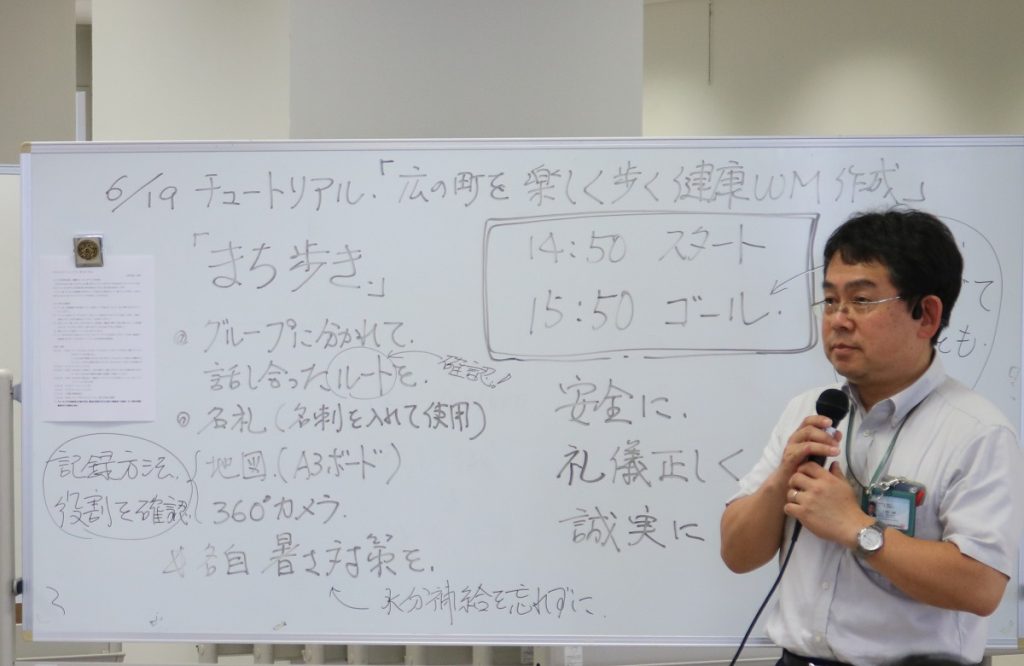 6/19 チュートリアル.「広の町を 楽しく歩く健康WM作成」
「まち歩き」
14:50 スタート
15:50 ゴール.
グループに分かれて.
話し合ったルートを. 確認!
名札(名刺を入れて使用)
記録方法、
役割を確認
地図.(A3ボード)
360°カメラ.
各自 暑さ対策を.
水分補給を忘れずに
安全に.
礼儀正しく
誠実に
て
も.